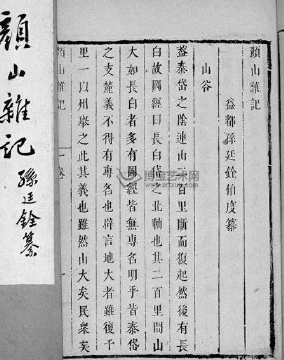 顏山雜記
益都孫廷銓伯度纂
山谷
蓋泰岱之陰連山二百里斷而復起然後有長
白故圖經曰長白岱之北輔也其二百里間山
大如長白者多有圖經皆無專名明乎皆泰岱
之支麓義不得有專名也辟言地大者雖復千
里一以州舉之此其義也雖然山大矣民衆矣
顏山雜記
顏山雜記
孫廷銓纂
博宝艺术网